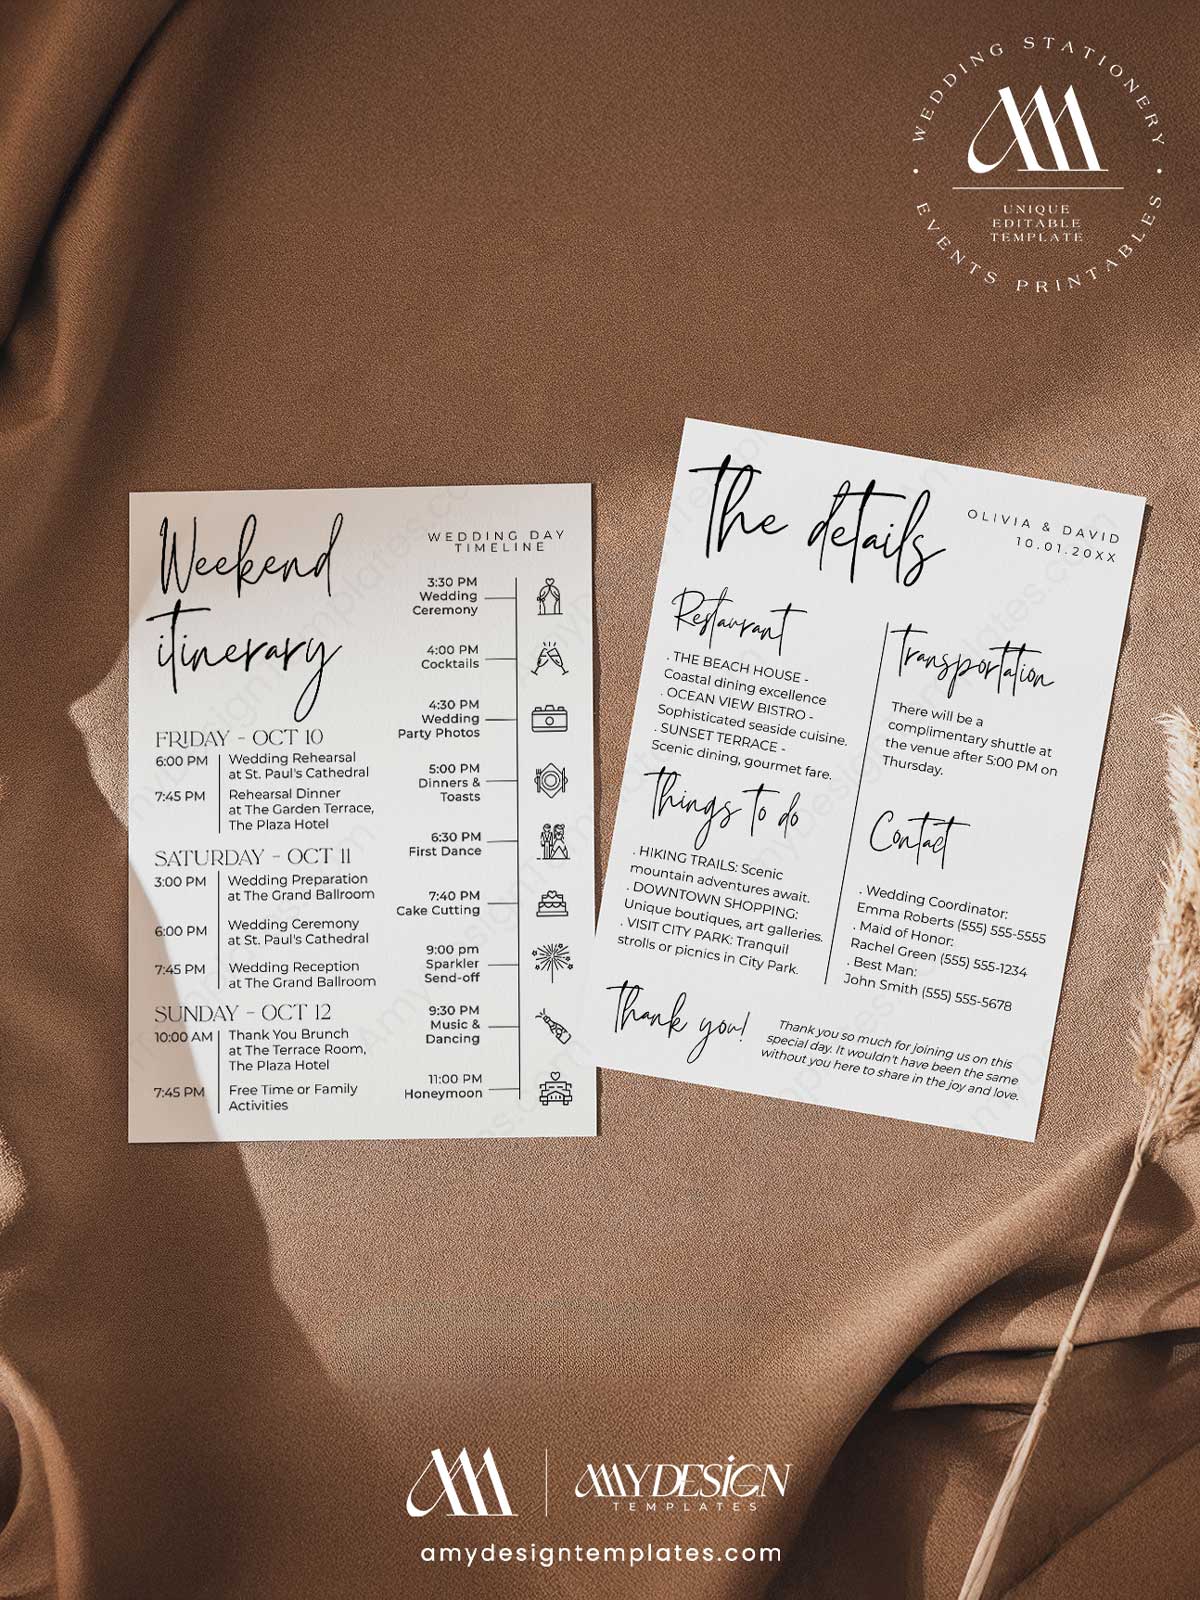 WEDDING STATIONERY
AM
UNIQUE
EDITABLE
TEMPLATE
EVENTS PRINTABLES
Weekend
itinerary
FRIDAY - OCT 10
6:00 PM Wedding Rehearsal
at St. Paul's Cathedral
7:45 PM Rehearsal Dinner
at The Garden Terrace,
The Plaza Hotel
SATURDAY - OCT 11
3:00 PM Wedding Preparation
at The Grand Ballroom
6:00 PM Wedding Ceremony
at St. Paul's Cathedral
7:45 PM Wedding Reception
at The Grand Ballroom
SUNDAY - OCT 12
10:00 AM Thank You Brunch
at The Terrace Room,
The Plaza Hotel
7:45 PM Free Time or Family
Activities
WEDDING DAY
TIMELINE
3:30 PM
Wedding
Ceremony
4:00 PM
Cocktails
4:30 PM
Wedding
Party Photos
5:00 PM
Dinners &
Toasts
6:30 PM
First Dance
7:40 PM
Cake Cutting
9:00 pm
Sparkler
Send-off
9:30 PM
Music &
Dancing
11:00 PM
Honeymoon
The details
OLIVIA & DAVID
10.01.20XX
Restaurant
. THE BEACH HOUSE -
Coastal dining excellence
. OCEAN VIEW BISTRO -
Sophisticated seaside cuisine.
. SUNSET TERRACE -
Scenic dining, gourmet fare.
Things to do
. HIKING TRAILS: Scenic
mountain adventures await.
. DOWNTOWN SHOPPING:
Unique boutiques, art galleries.
. VISIT CITY PARK: Tranquil
strolls or picnics in City Park.
Transportation
There will be a
complimentary shuttle at
the venue after 5:00 PM on
Thursday.
Contact
. Wedding Coordinator:
Emma Roberts (555) 555-5555
. Maid of Honor:
Rachel Green (555) 555-1234
. Best Man:
John Smith (555) 555-5678
Thank you!
Thank you so much for joining us on this
special day. It wouldn't have been the same
without you here to share in the joy and love.
AM
AMY DESIGN
TEMPLATES
amydesigntemplates.com